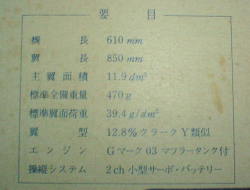 要 目
機 長 610 mm
翼 長 850 mm
主翼面積 11.9 dm²
標準全備重量 470 g
標準翼面荷重 39.4 g/dm²
翼 型 12.8% クラーク Y 類似
エ ン ジ ン G マーク 03 マフラータンク付
操縦システム 2 ch 小型サーボ・バッテリー